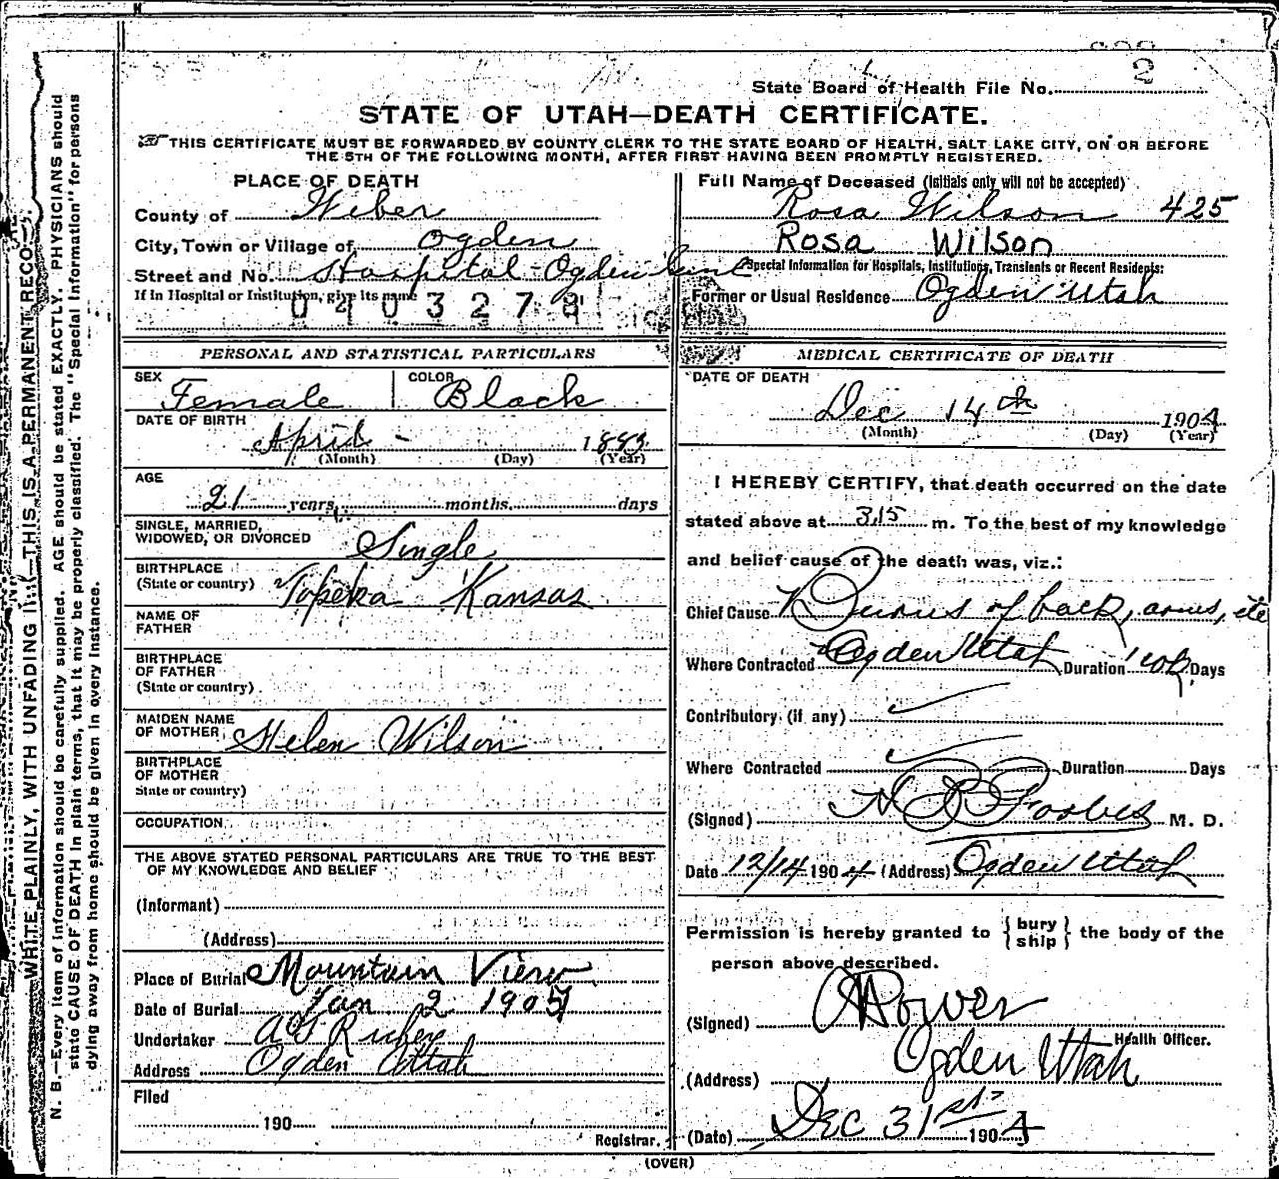 2
State Board of Health File No.
STATE OF UTAH—DEATH CERTIFICATE.
THIS CERTIFICATE MUST BE FORWARDED BY COUNTY CLERK TO THE STATE BOARD OF HEALTH, SALT LAKE CITY, ON OR BEFORE
THE 5TH OF THE FOLLOWING MONTH, AFTER FIRST HAVING BEEN PROMPTLY REGISTERED.
PLACE OF DEATH
County of Weber
City, Town or Village of Ogden
Street and No. Hospital - Ogden
If in Hospital or Institution, give its name
0403278
Full Name of Deceased (Initials only will not be accepted)
Rosa Wilson 425
Rosa Wilson
Special Information for Hospitals, Institutions, Transients or Recent Residents:
Former or Usual Residence Ogden Utah
PERSONAL AND STATISTICAL PARTICULARS
SEX Female COLOR Black
DATE OF BIRTH
April - 1883
(Month) (Day) (Year)
AGE
21 years, months, days
SINGLE, MARRIED,
WIDOWED, OR DIVORCED Single
BIRTHPLACE
(State or country) Topeka Kansas
NAME OF
FATHER
BIRTHPLACE
OF FATHER
(State or country)
MAIDEN NAME
OF MOTHER Helen Wilson
BIRTHPLACE
OF MOTHER
State or country)
OCCUPATION
THE ABOVE STATED PERSONAL PARTICULARS ARE TRUE TO THE BEST
OF MY KNOWLEDGE AND BELIEF
(Informant)
(Address)
Place of Burial Mountain View
Date of Burial Jan 2 1905
Undertaker
Address Ogden Utah
Filed
190
Registrar.
MEDICAL CERTIFICATE OF DEATH
DATE OF DEATH
Dec 14th 1904
(Month) (Day) (Year)
I HEREBY CERTIFY, that death occurred on the date
stated above at 3.15 m. To the best of my knowledge
and belief cause of the death was, viz.:
Chief Cause Burns of back, arms, etc
Where Contracted Ogden Utah Duration Days
Contributory (if any)
Where Contracted Duration Days
(Signed) Forbes M. D.
Date 12/14 1904 (Address) Ogden Utah
Permission is hereby granted to {bury
ship} the body of the
person above described.
(Signed)
Health Officer.
Ogden Utah
(Address)
(Date) Dec 31st 1904
(OVER)
WRITE PLAINLY, WITH UNFADING THIS IS A PERMANENT
N. B.—Every item of information should be carefully supplied. AGE should be stated EXACTLY. PHYSICIANS should
state CAUSE OF DEATH in plain terms, that it may be properly classified. The "Special Information" for persons
dying away from home should be given in every instance.